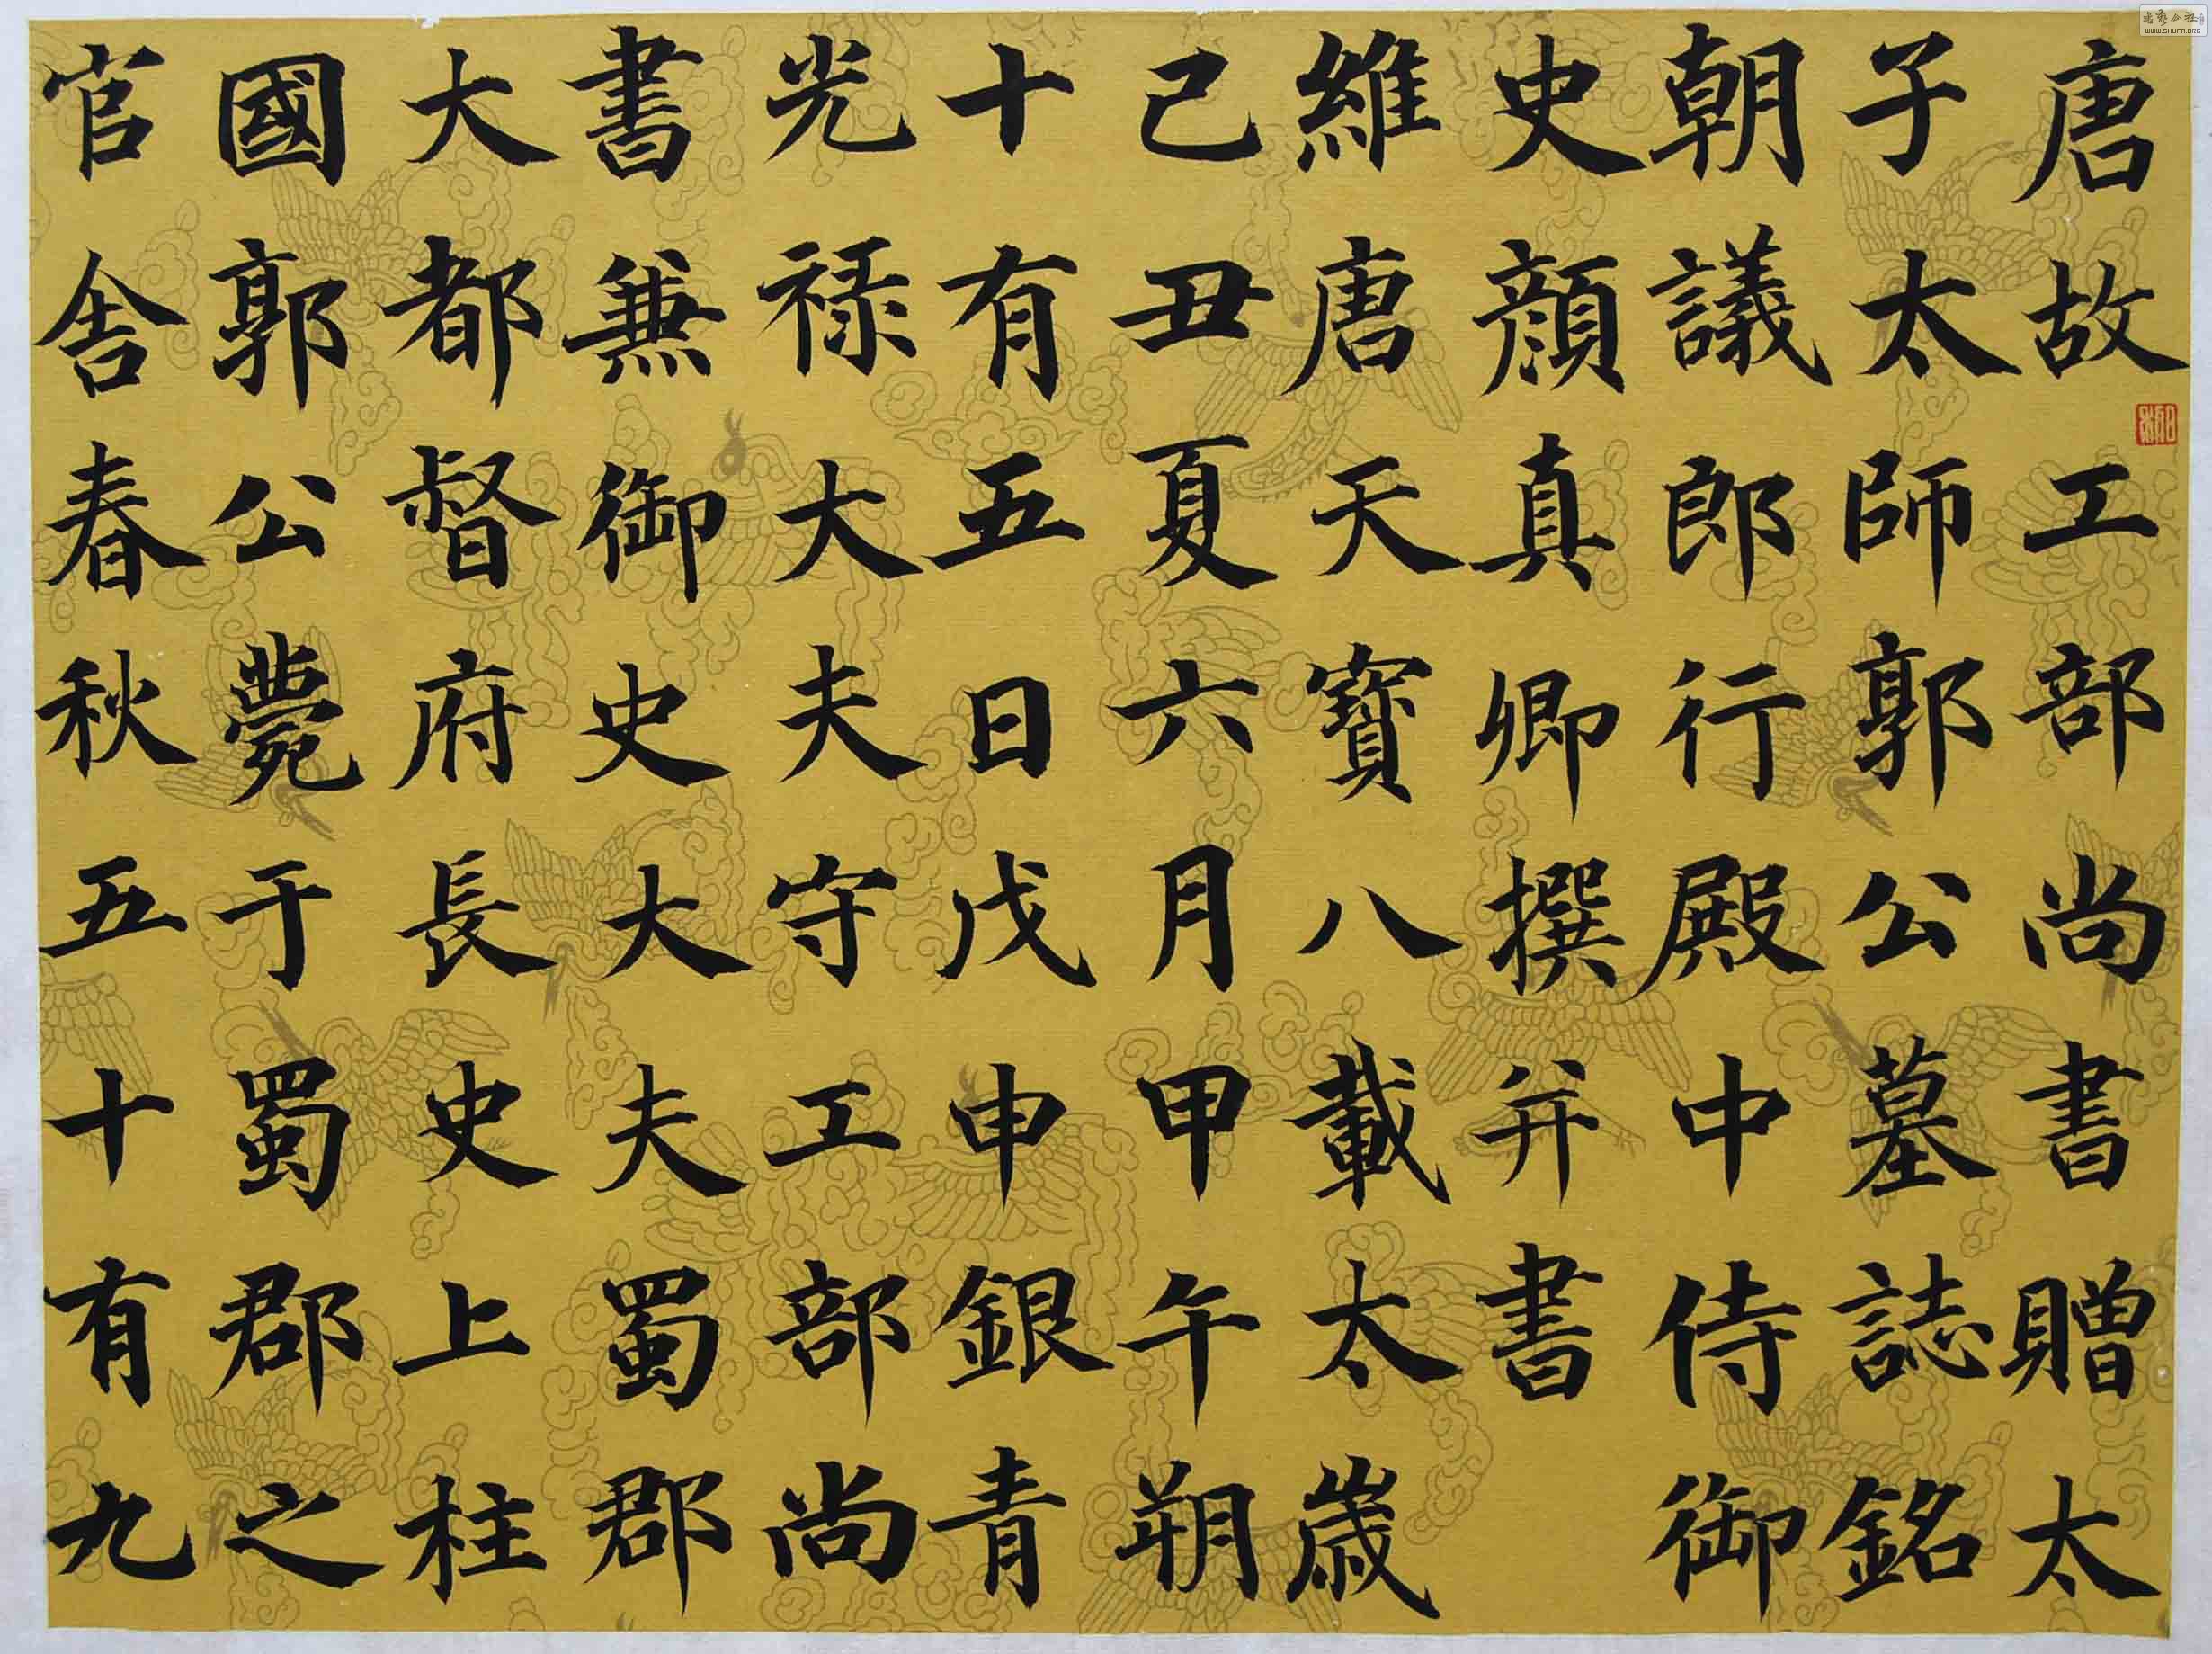 唐故工部尚書贈太
子太師郭公墓誌銘
朝議郎行殿中侍御
史顏真卿撰并書
維唐天寶八載太歲
己丑夏六月甲午朔
十有五日戊申銀青
光祿大夫守工部尚
書兼御史大夫蜀郡
大都督府長史上柱
國郭公薨于蜀郡之
官舍春秋五十有九
WWW.SHUFA.ORG